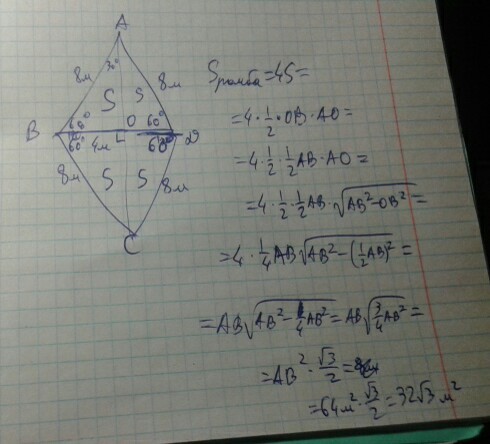 A
30°
8м 8м
S S
B 60° O 60° D
60° 4м 60°
8м S S 8м
C
Sромба = 4S =
= 4 · 1/2 · OB · AO =
= 4 · 1/2 · 1/2 AB · AO =
= 4 · 1/2 · 1/2 AB · √(AB² - OB²) =
= 4 · 1/4 AB √(AB² - (1/2 AB)²) =
= AB √(AB² - 1/4 AB²) = AB √(3/4 AB²) =
= AB² · √3/2 =
= 64 м² · √3/2 = 32√3 м²